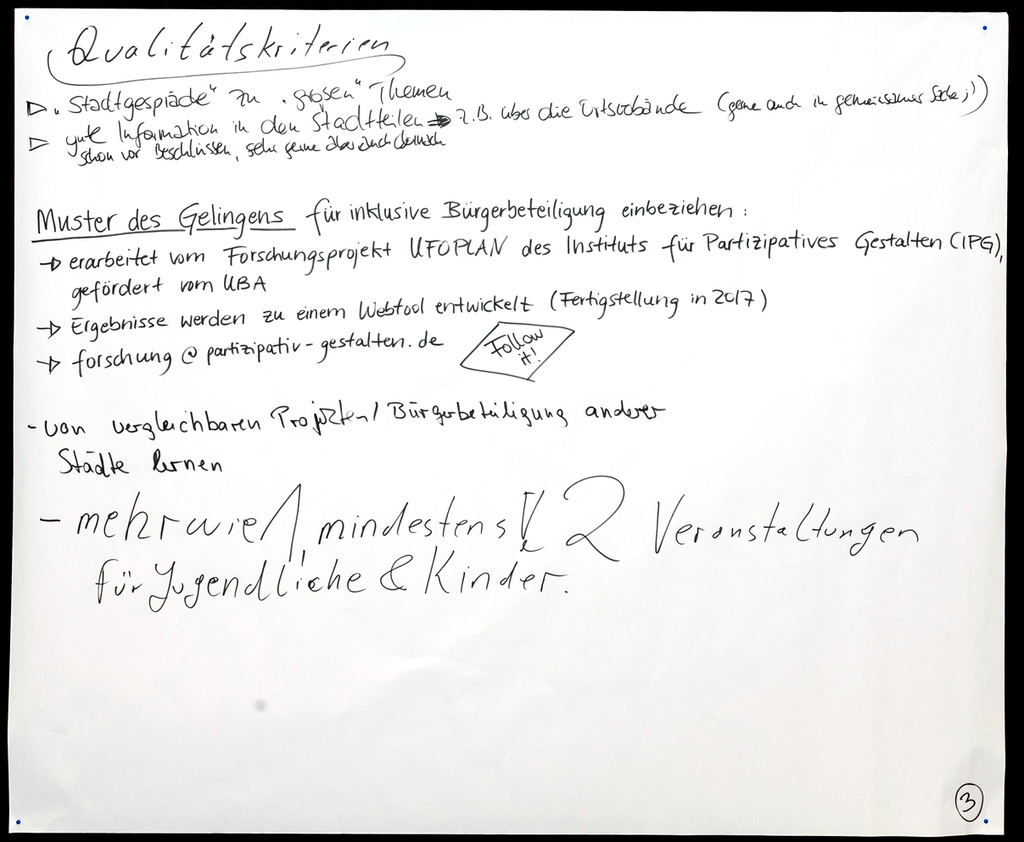 Qualitätskriterien
▷ „Stadtgespräche" zu „großen" Themen
▷ gute Information in den Stadtteilen → z.B. über die Ortsverbände (gerne auch in gemeinsamer Sache ;))
schon vor Beschlüssen, sehr gerne aber auch danach
Muster des Gelingens für inklusive Bürgerbeteiligung einbeziehen:
→ erarbeitet vom Forschungsprojekt UFOPLAN des Instituts für Partizipatives Gestalten (IPG),
gefördert vom UBA
→ Ergebnisse werden zu einem Webtool entwickelt (Fertigstellung in 2017)
→ forschung@partizipativ-gestalten.de
Follow
it!
- von vergleichbaren Projekten / Bürgerbeteiligung anderer
Städte lernen
- mehr wie 1, mindestens! 2 Veranstaltungen
für Jugendliche & Kinder.
3